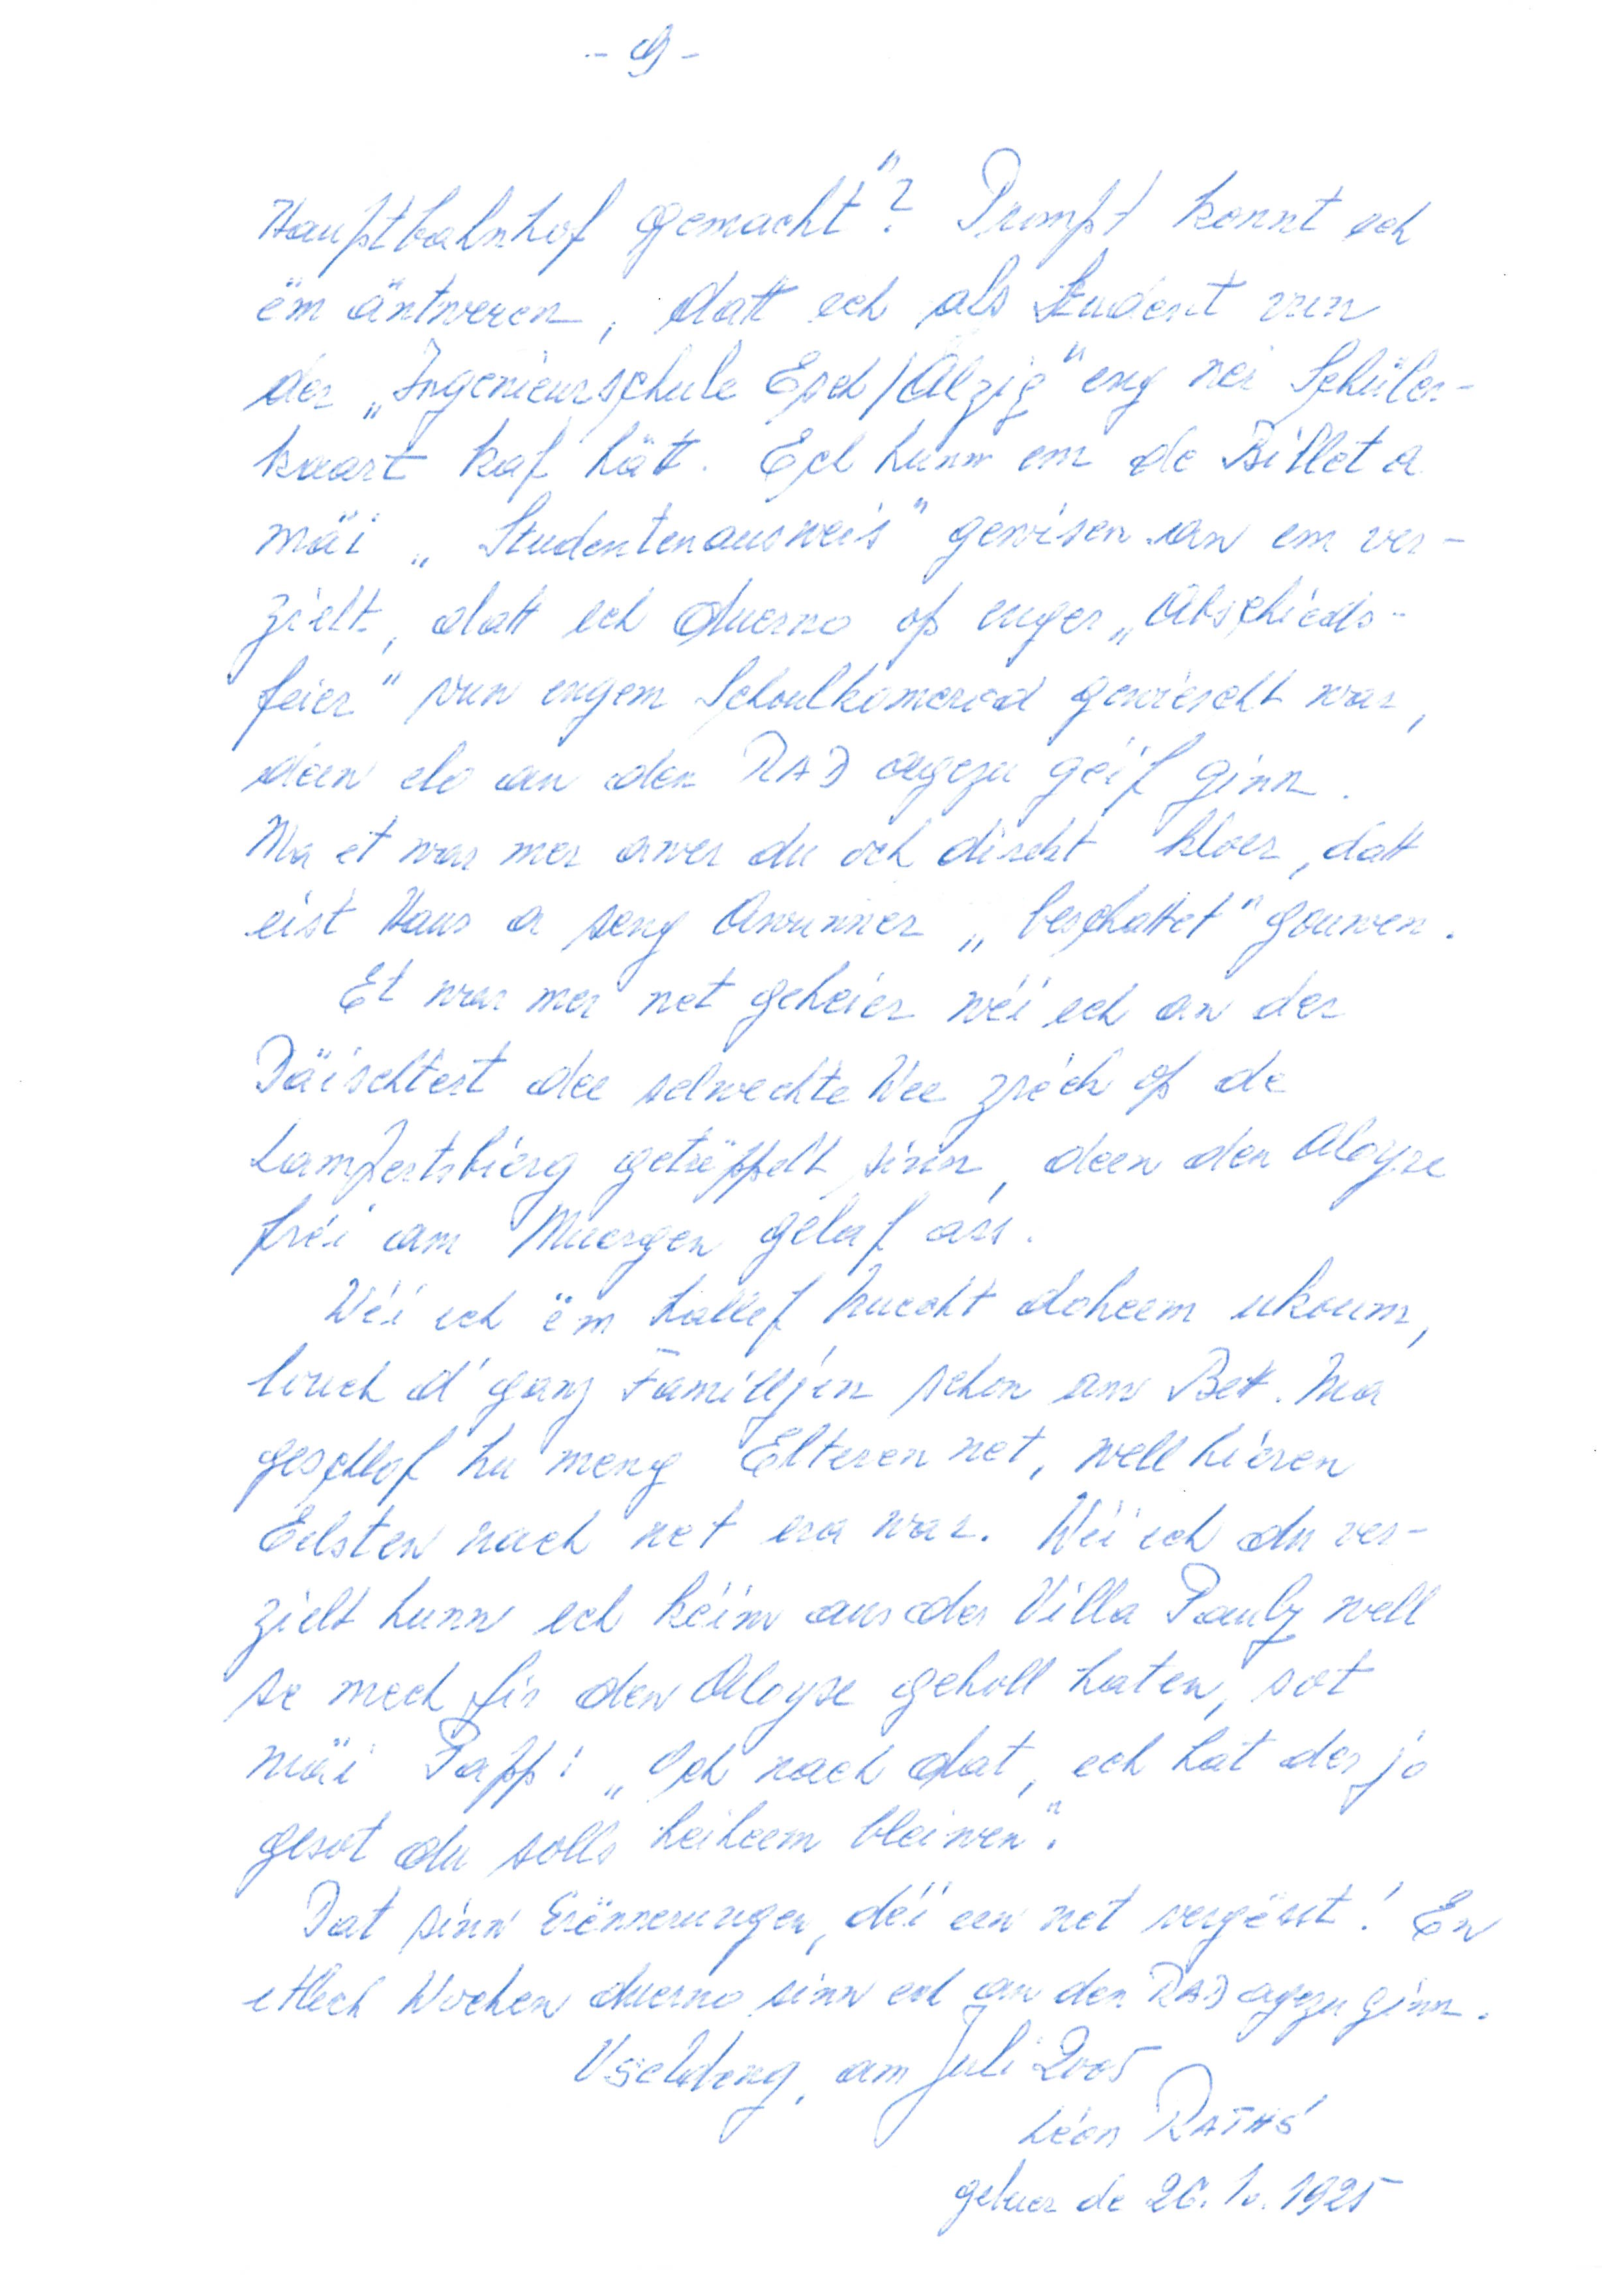 - 9 -
Hauptbahnhof gemacht"? Prompt konnt ech
ëm äntweren, datt ech als Student vun
der „Ingenieurschule Esch/Alzig" eng nei Schüler-
kaart kaf hätt. Ech hunn em de Billet a
mäi „Studentenausweis" gewisen an em ver-
zielt, datt ech duerno op enger „Abschieds-
feier" vun engem Schoulkomerod gewiescht war,
deen elo an den RAD agezu géif ginn.
Ma et war mer awer du och direkt kloer, datt
eist Haus a seng Awunner „beschattet" gouwen.
Et war mer net geheier wéi ech an der
Däischtert dee selwechte Wee zréck op de
Lampertsbierg getrëppelt sinn, deen den Aloyse
fréi am Muergen gelaf ass.
Wéi ech ëm hallef Nuecht doheem ukoum,
louch d'ganz Familljen schon am Bett. Ma
geschlof hu meng Elteren net, well hieren
Eelsten nach net era war. Wéi ech du ver-
zielt hunn ech kéim aus der Villa Pauly well
se mech fir den Aloyse geholl haten, sot
mäi Papp: „Och nach dat, ech hat der jo
gesot du solls heiheem bleiwen".
Dat sinn Erënnerungen, déi een net vergësst! En
etlech Wochen duerno sinn ech an den RAD agezu ginn.
Useldeng, am Juli 2005
Léon RATHS
gebuer de 26.10.1925